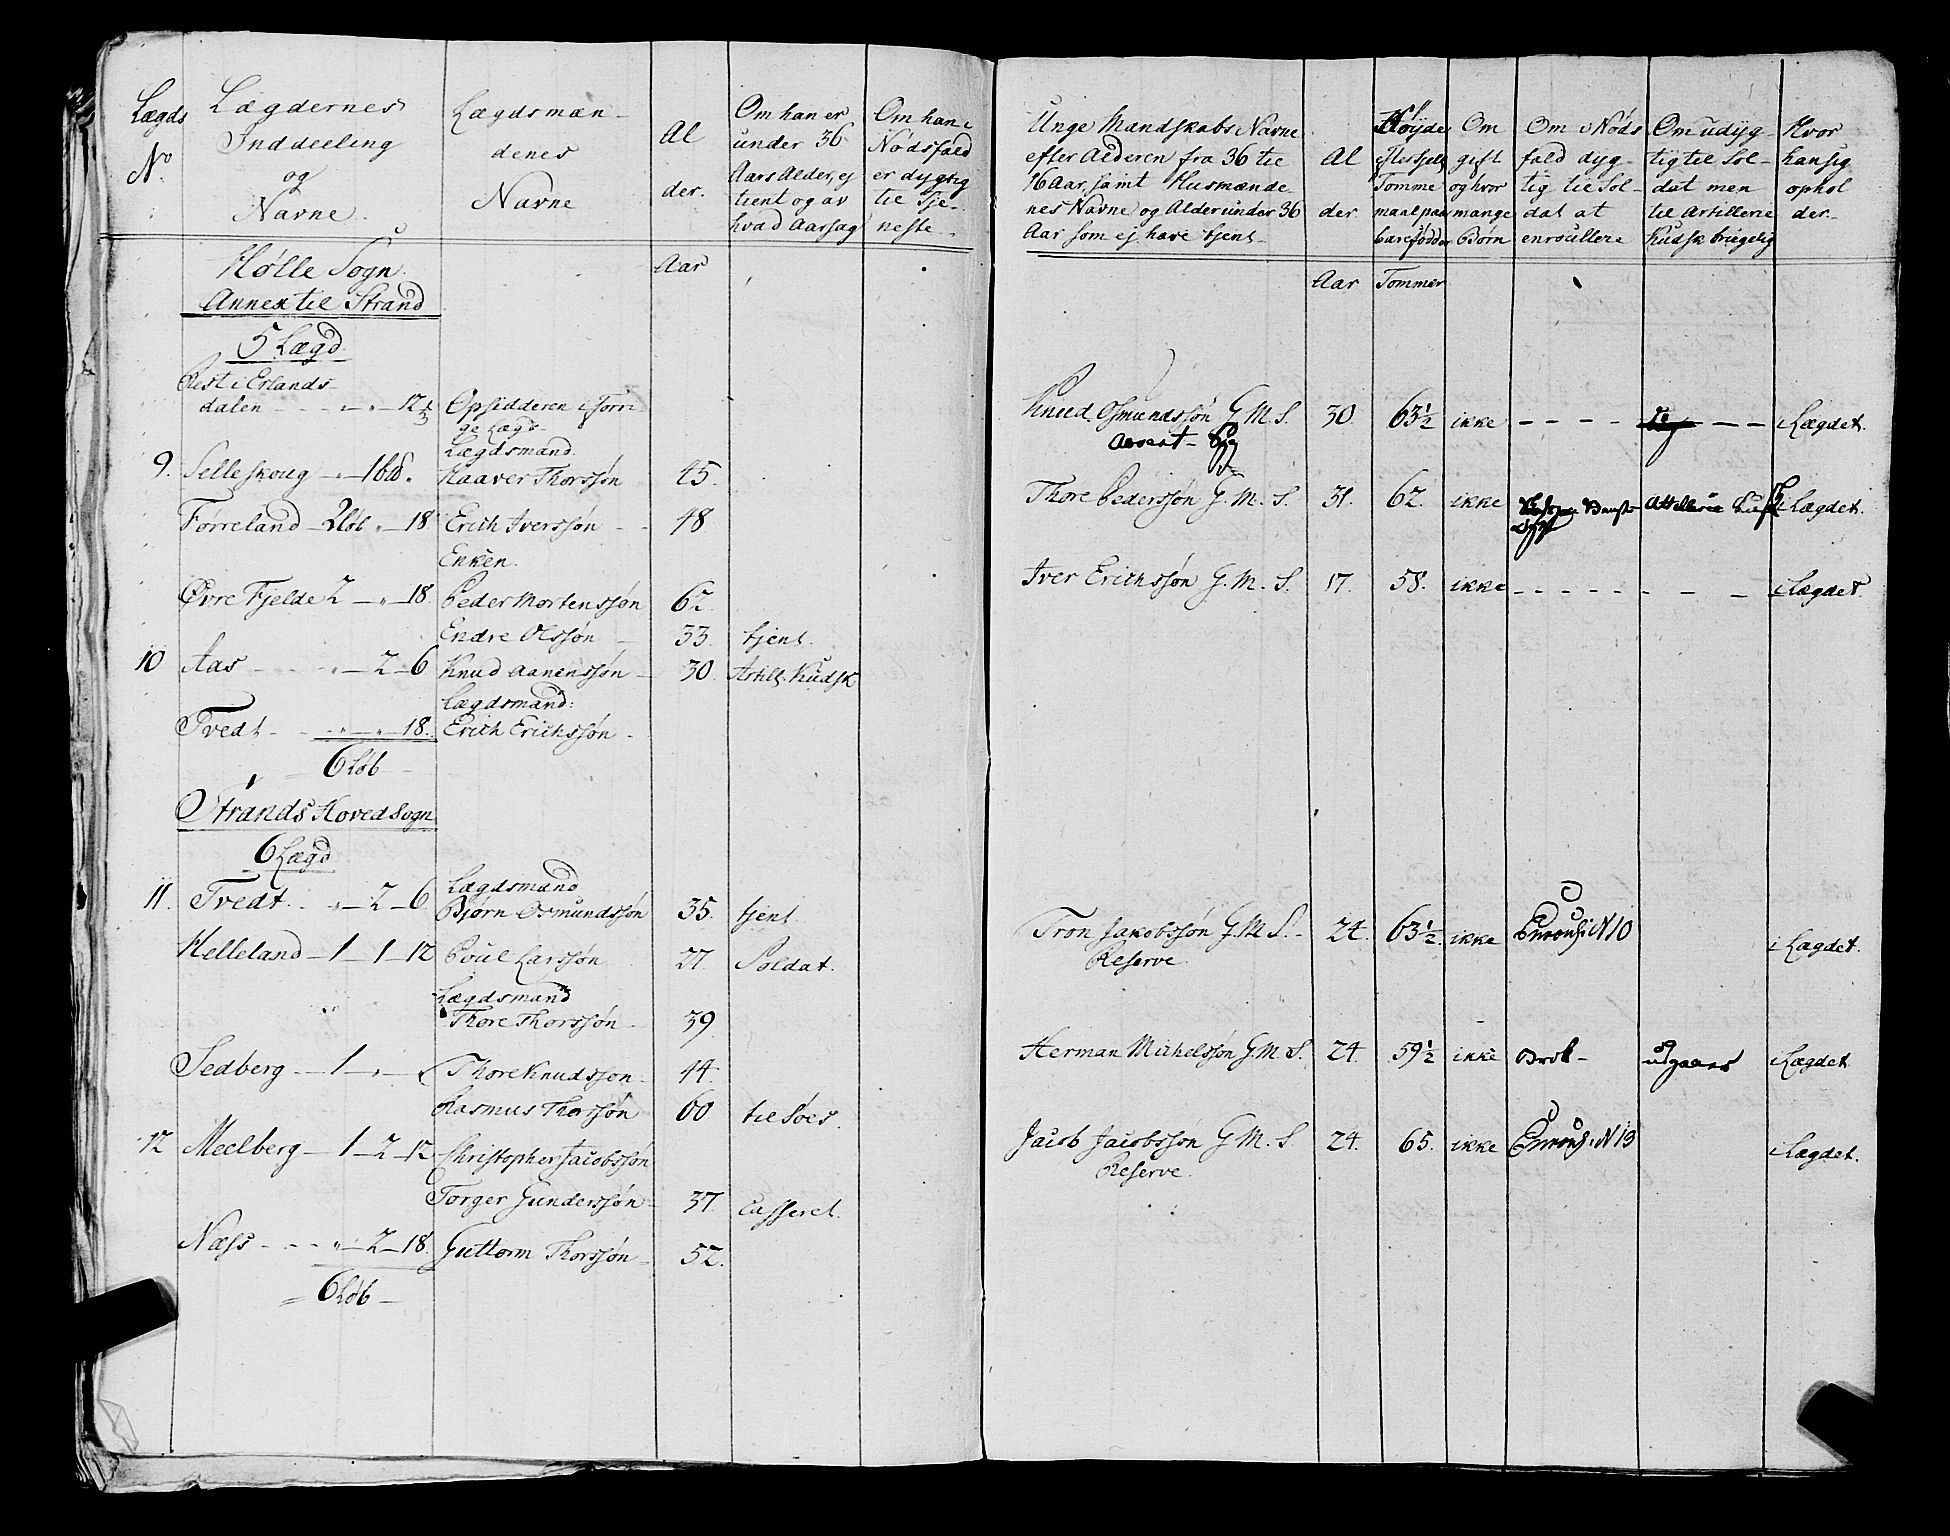 Lægds
No
Lægdernes
Inddeeling
og
Navne
Lægdsmæn-
denes
Navne
Al
der.
Om han er
under 36
Aars Alder, ej
tient og av
hvad Aarsag
Om han i
Nødsfald
er dygtig
til Tje-
neste
Aar
Hølle Sogn
Annex til Strand
5 Lægd
Rest i Erlands-
dalen - - - 12 1/3 Opsidderen i Forri-
ge Lægd-
Lægdsmand
9. Selleskoug - - 1 - 18. Haaver Thorssøn 45.
Førreland - 2 Løb - 18 Erich Iverssøn - 48
Enken
Øvre Fjelde 2 - - 18. Peder Mortenssøn 62.
Endre Olssøn - 33. tjent.
10 Aas - - - 2 - 6 Knud Aanenssøn - 30. Artill. Kudsk
Lægdsmand:
Tvedt - - - 18. Erich Erichssøn -
6 Løb -
Strands Hoved Sogn
6 Lægd
Lægdsmand
11. Tvedt. - - 2 - 6 Bjørn Osmundssøn 35. tjent
Helleland - 1 - 1 - 12 Poul Larssøn 27. Soldat.
Lægdsmand
Thore Thorssøn - 39
Sedberg - 1 - - Thore Knudssøn - 44.
Rasmus Thorssøn 60 til Søes.
12 Meelberg - 1 - 2 - 12 Christopher Jacobssøn
Torger Gunderssøn - 37. Casseret.
Næss - - - 2 - 18. Guttorm Thorssøn - 52.
= 6 Løb -
Unge Mandskabs Navne
efter Alderen fra 36 til
16 Aar, samt Husmænde
nes Navne og Alder under 36
Aar som ej have tjent -
Al
der.
Høyde
Tomme
maal paa
barefodder
Om
gift
og hvor
mange
Børn
Om i Nøds
fald dyg-
tig til Sol-
dat at
enroullere
Om udyg-
tig til Sol-
dat men
til Artillerie
Kudsk brugelig
Hvor
han sig
ophol
der.-
Aar Tommer
Knud Osmundssøn G. M. S. 30. 63 1/2 ikke - - - - - - i Lægdet.
Thore Pederssøn G. M. S. 31. 62. ikke i Lægdet.
Iver Erichssøn G. M. S. 17. 58. ikke - - - - - - - - - i Lægdet.
Tron Jakobssøn G. M. S. - 24. 63 1/2. ikke N 10 i Lægdet.
Reserve.
Herman Michelssøn G. M. S. 24. 59 1/2 ikke Brok - udgaaer i Lægdet.
Jacob Jacobssøn G. M. S 24. 65. ikke N 13 i Lægdet.
Reserve.